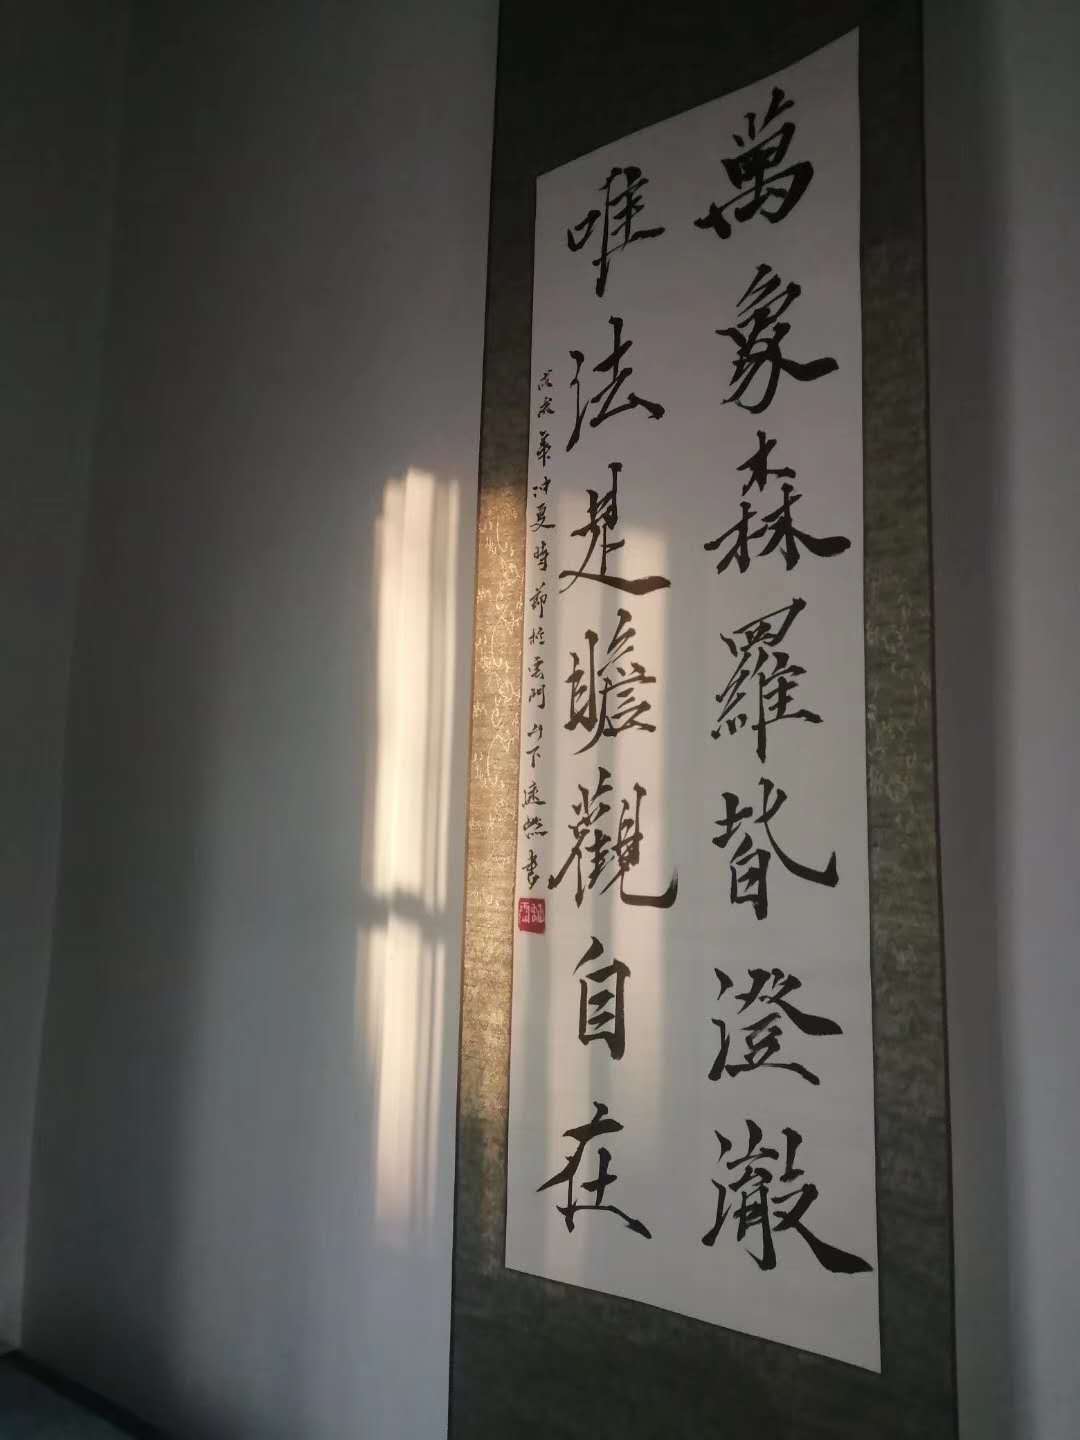 萬象森羅皆澄澈
唯法是瞻觀自在
戊戌年仲夏時節於雲門山下逸然書